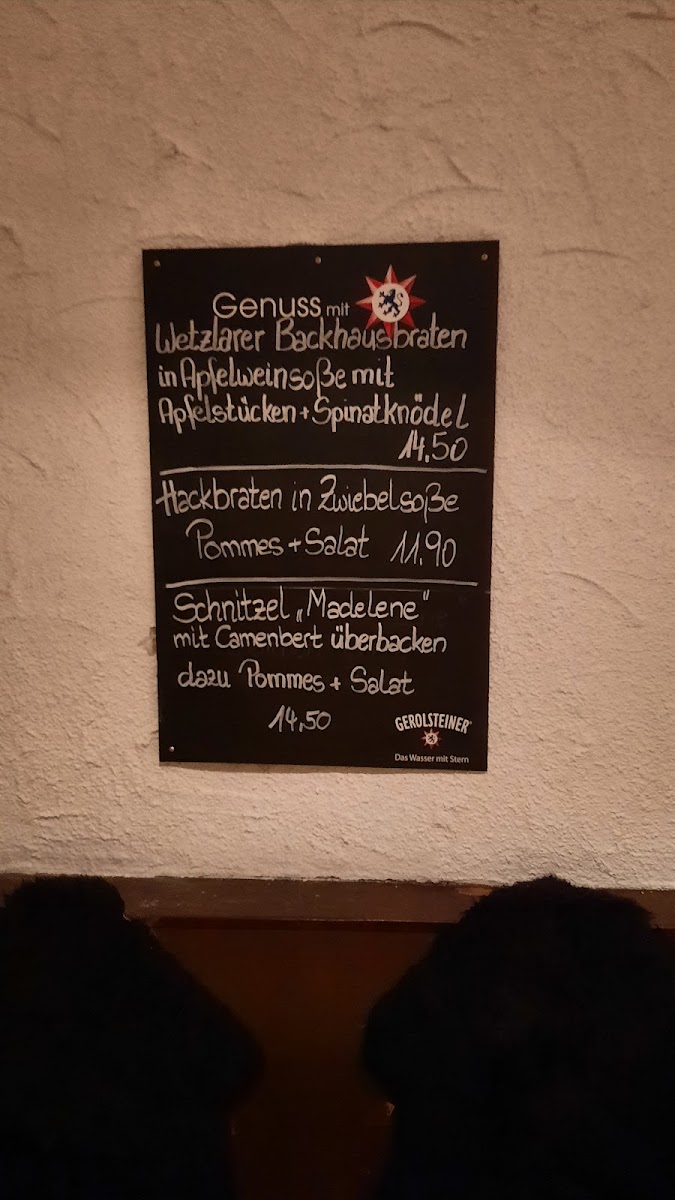 Genuss mit
Wetzlarer Backhausbraten
in Apfelweinsoße mit
Apfelstücken + Spinatknödel
14.50
Hackbraten in Zwiebelsoße
Pommes + Salat 11.90
Schnitzel „Madelene"
mit Camenbert überbacken
dazu Pommes + Salat
14,50
GEROLSTEINER
Das Wasser mit Stern